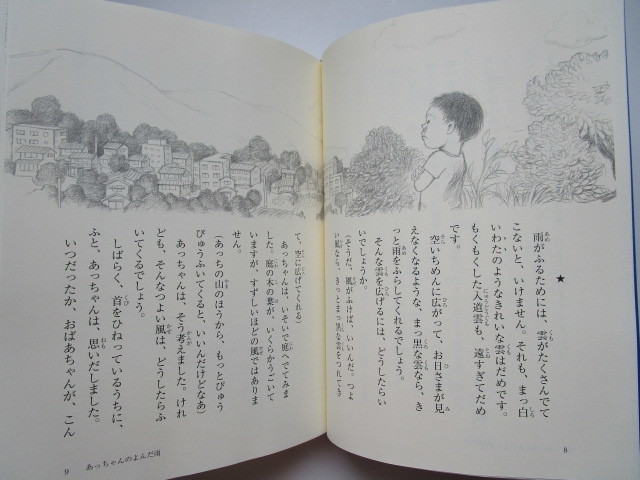 ★
雨がふるためには、雲がたくさんでて
こないと、いけません。それも、まっ白
いわたのようなきれいな雲はだめです。
もくもくした入道雲も、遠すぎてだめ
です。
空いちめんに広がって、お日さまが見
えなくなるような、まっ黒な雲なら、き
っと雨をふらしてくれるでしょう。
そんな雲を広げるには、どうしたらい
いでしょうか。
(そうだ、風がふけば、いいんだ。つよ
い風なら、きっとまっ黒な雲をつれてき
8
て、空に広げてくれる)
あっちゃんは、いそいで庭へでてみま
した。庭の木の葉が、いくらかうごいて
いますが、すずしいほどの風ではありま
せん。
(あっちの山のほうから、もっとびゅう
びゅうふいてくると、いいんだけどなあ)
あっちゃんは、そう考えました。けれ
ども、そんなつよい風は、どうしたらふ
いてくるでしょう。
しばらく、首をひねっているうちに、
ふと、あっちゃんは、思いだしました。
いつだったか、おばあちゃんが、こん
9 あっちゃんのよんだ雨